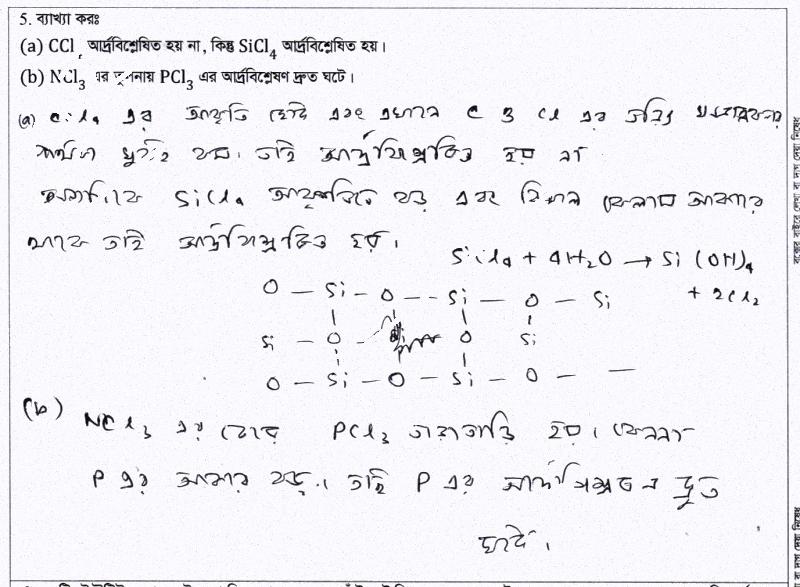 5. ব্যাখ্যা করঃ
(a) CCl আর্দ্রবিশ্লেষিত হয় না, কিন্তু SiCl4 আর্দ্রবিশ্লেষিত হয়।
(b) NCl3 এর তুলনায় PCl3 এর আর্দ্রবিশ্লেষণ দ্রুত ঘটে।
(a) এর আকৃতি ছোট এবং এখানে C ও Cl এর
হয়। তাই আর্দ্রবিশ্লেষিত হয় না
SiCl4 আকৃতিতে বড় এবং বিশাল আকারে
থাকে তাই আর্দ্রবিশ্লেষিত হয়।
SiCl4 + 4H2O → Si (OH)4
+ 2Cl2
O — Si — O — Si — O — Si
Si — O — O Si
O — Si — O — Si — O —
(b) NCl3 এর চেয়ে PCl3 তাড়াতাড়ি হয়। কেননা
P এর আকার বড়। তাই P এর দ্রুত
ঘটে।